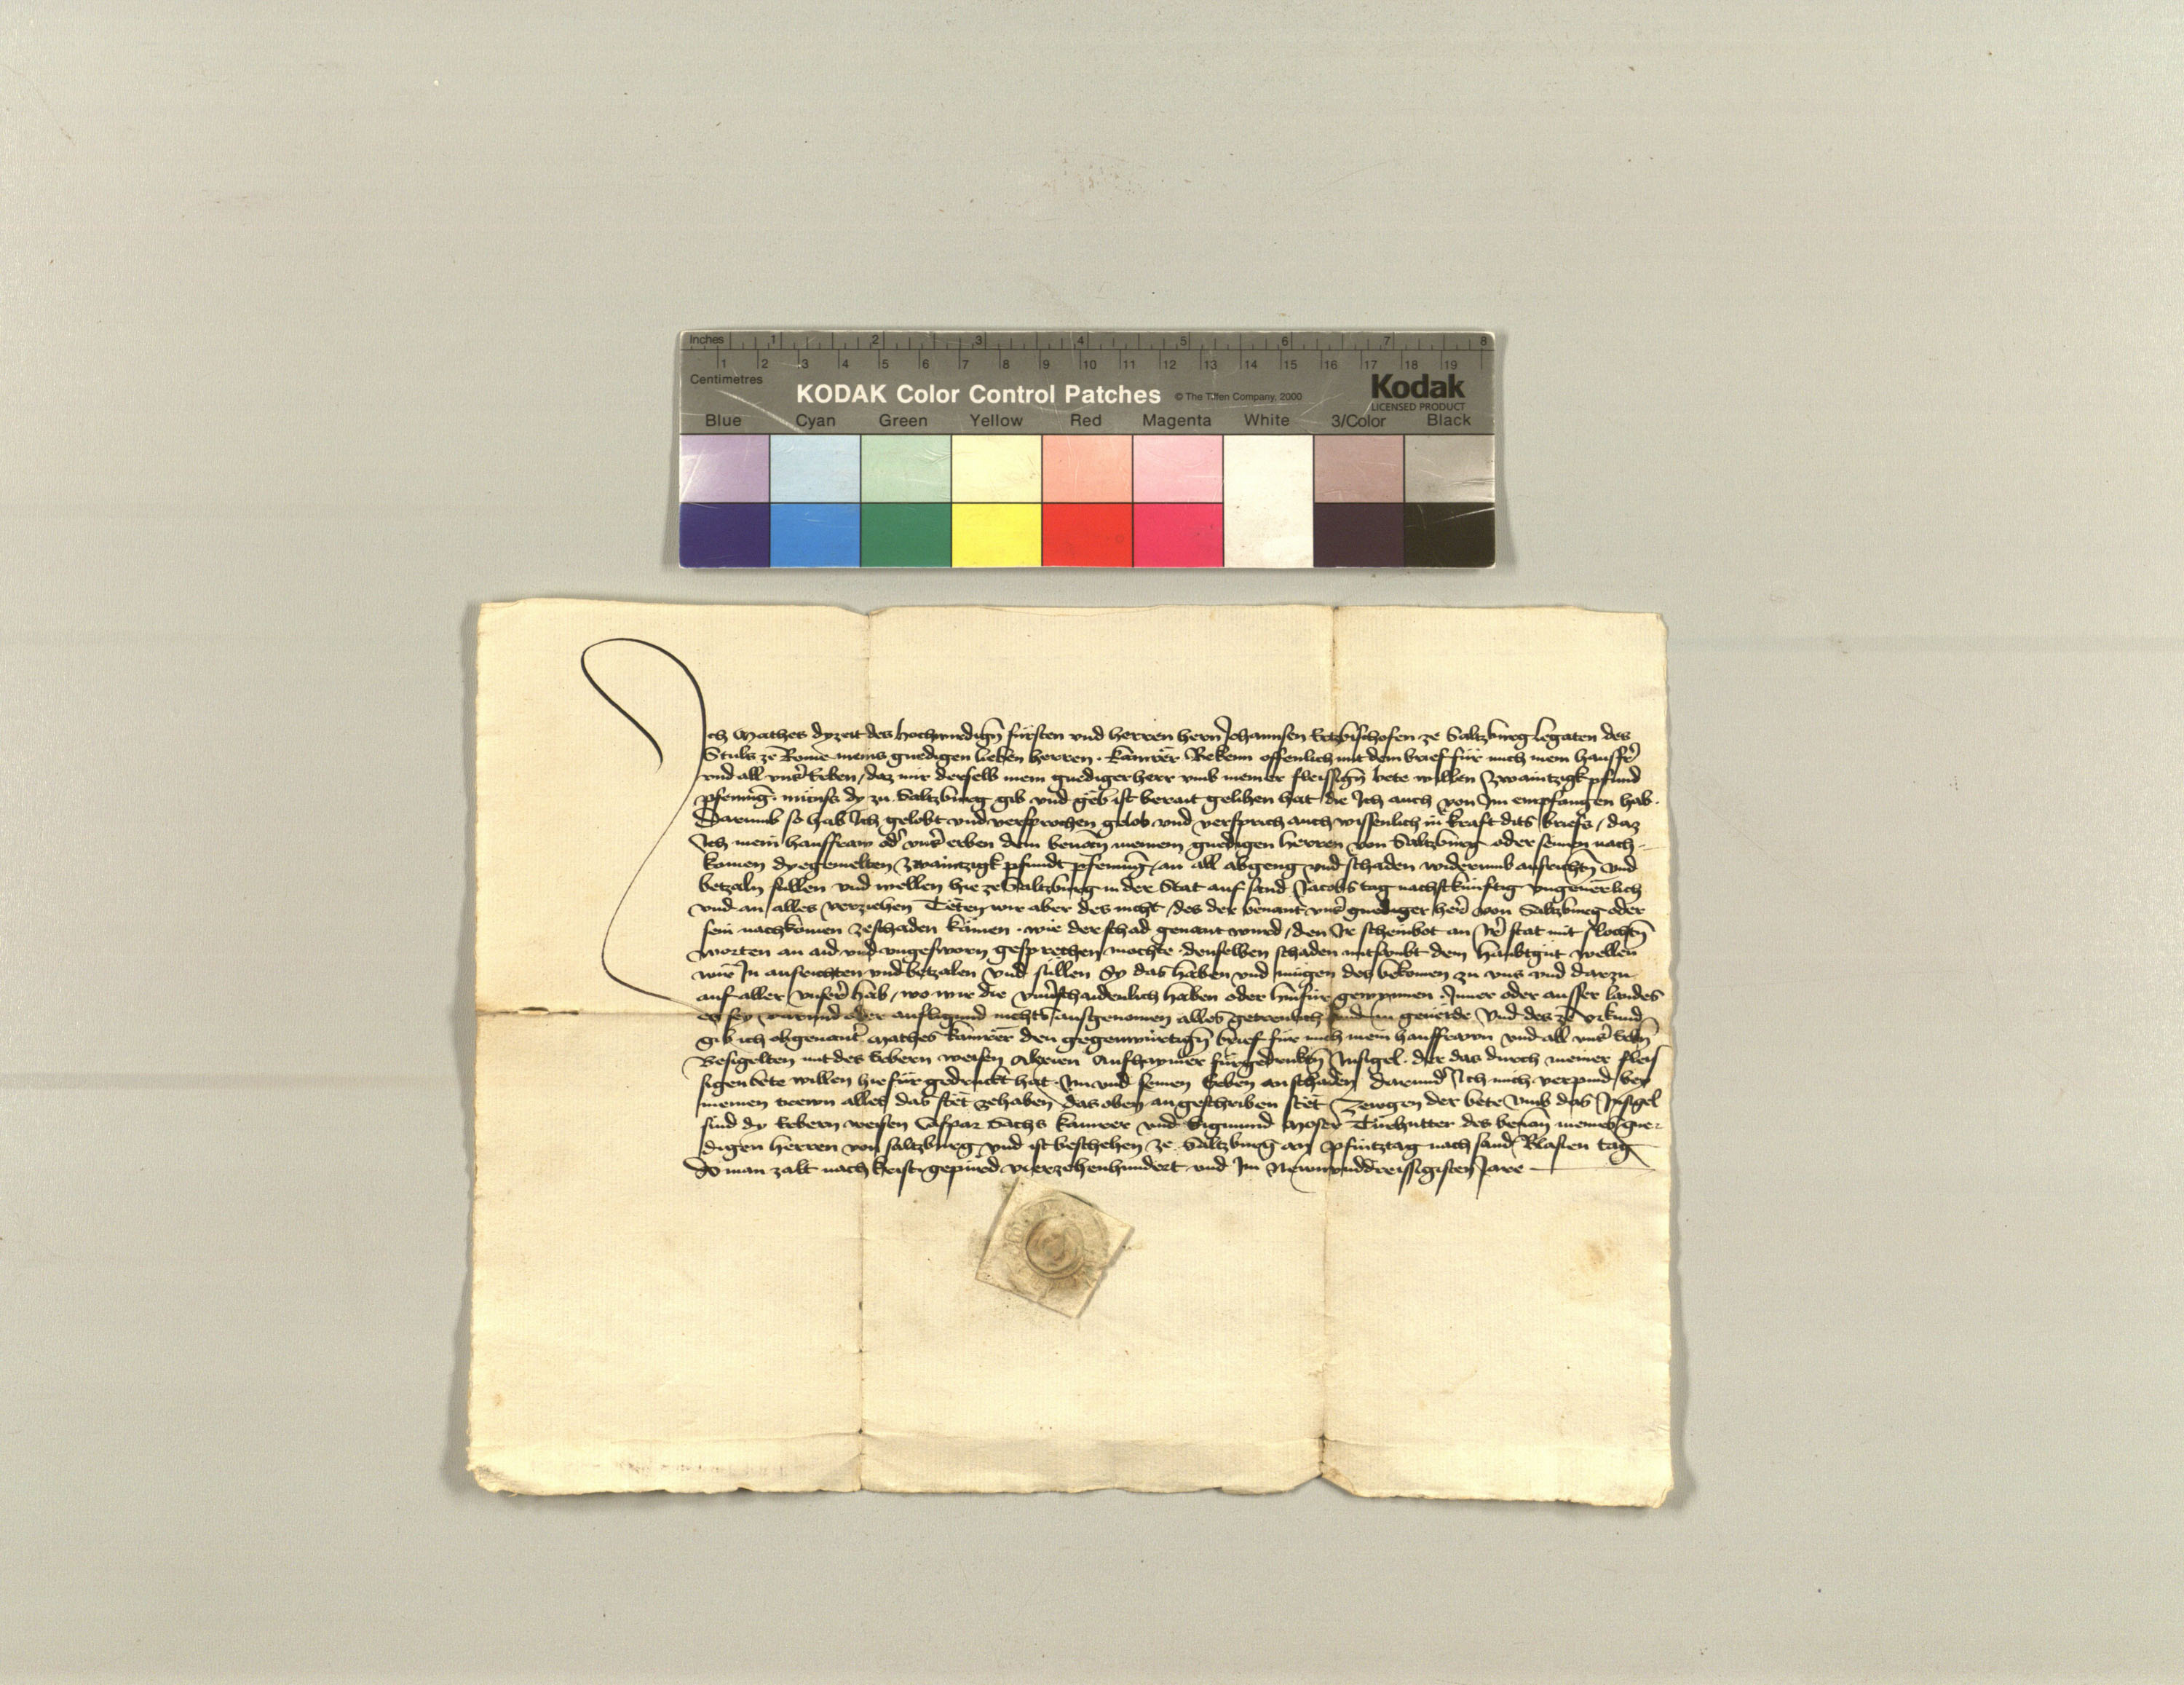 Inches 1 2 3 4 5 6 7 8
1 2 3 4 5 6 7 8 9 10 11 12 13 14 15 16 17 18 19
Centimetres
KODAK Color Control Patches © The Tiffen Company, 2000 Kodak
LICENSED PRODUCT
Blue Cyan Green Yellow Red Magenta White 3/Color Black
Ich Mathes dyzeit des hochwirdigñ fürsten vnd herren hern Johannsen Ertzbischofen ze Saltzburg legaten des
Stuls ze Rome meins gnedigen lieben herren . kamrer Bekenn offenlich mit dem brief für mich mein hausfr̄
vnd all vnsr̄ Erben / daz mir derselb mein gnediger herr vmb meiner fleissigñ bete willen Zwaintzigk pfund
pfening . münss dy zu Saltzburg gib vnd geb ist berait gelihen hat / die Ich auch von Im empfangen hab .
Darumb so hab Ich gelobt vnd versprochen gelob vnd versprich auch wissenlich in kraft dits briefs / daz
Ich mein hausfraw od̄ vnsr̄ erben dem benañtn meinem gnedigen herren von Saltzburg oder seinen nach-
komen dyegemelten Zwaintzigk pfundt pfening / an all abgeng vnd schaden widerumb ausrichtñ vnd
betzaln sullen vnd wellen hie ze Saltzburg in der Stat auf sand Jacobs tag nachstkünftig vngeuerlich
vnd an alles verziehen Teten wir aber des nicht / des der benant vnsr̄ gnediger her̄ von Saltzburg oder
sein nachkomen zeschaden kämen . wie der schad genant wurd / den Ir scheinbot an Ir̄ stat mit slechtñ
worten an aid vnd vngesworn gesprechen mochte . denselben schaden mitsambt dem haubtgut wellen
wir In ausrichten vnd betzalen vnd sullen Sy das haben vnd mügen des bekomen zu vns vnd darzu
auf aller vnserr̄ hab / wo wir die vnuerschaidenlich haben oder hinfür gewynnen . Inner oder ausser landes
es sey varund oder aufligund nichts ausgenomen alles getrewlich vnd an geuerde . Vnd des ze vrkund
gib ich obgenant̄ Mathes kamrer den gegenwürtigñ brief für mich mein hausfrawn vnd all vnsr̄ Erbñ
Besigelten mit des Erbern weisen Aufhaymer fürgedruktñ Insigel . der das durch meiner fleis
sigen bete willen hiefür gedruckt hat . Im vnd seinen Erben an schaden darund̄ Ich mich verpind bey
meinen trewn alles das stet zehaben das oben angeschriben stet Zewgen der bete vmb das Insigel
sind dy Erbern weisen Caspar Sachs kamrer vnd Sigmund Moser Türhutter des benañ meines gne-
digen herren von Saltzburg vnd ist beschehen ze Saltzburg am Pfintztag nach sand Blasien tag
Do man zalt nach kristi gepurd vierzehenhundert vnd Im Newnvnddreissigisten Jare